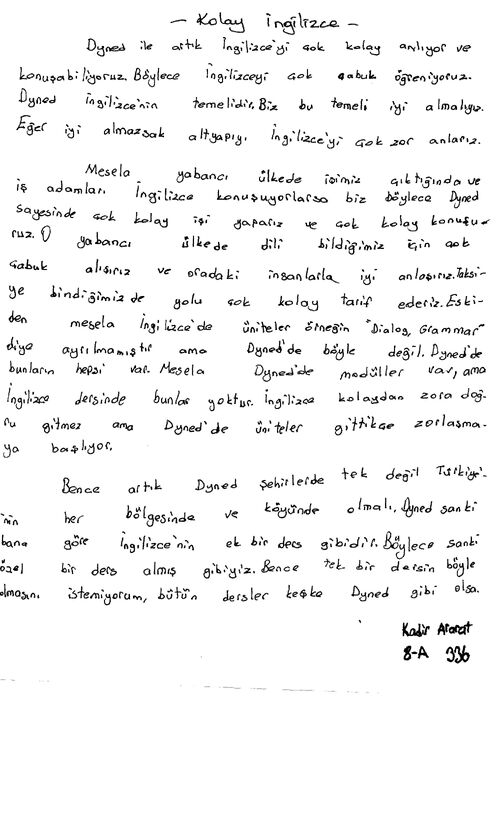 - Kolay İngilizce -
Dyned ile artık İngilizce'yi çok kolay anlıyor ve
konuşabiliyoruz. Böylece İngilizceyi çok çabuk öğreniyoruz.
Dyned ingilizce'nin temelidir. Biz bu temeli iyi almalıyız.
Eğer iyi almazsak altyapıyı, İngilizce'yi çok zor anlarız.
Mesela yabancı ülkede işimiz çıktığında ve
iş adamları İngilizce konuşuyorlarsa biz böylece Dyned
sayesinde çok kolay işi yaparız ve çok kolay konuşu-
ruz. O yabancı ülkede dili bildiğimiz için çok
çabuk alışırız ve oradaki insanlarla iyi anlaşırız. Taksi-
ye bindiğimizde yolu çok kolay tarif ederiz. Eski-
den mesela İngilizce'de üniteler örneğin "Dialog, Grammar"
diye ayrılmamıştır ama Dyned'de böyle değil. Dyned'de
bunların hepsi var. Mesela Dyned'de modüller var, ama
İngilizce dersinde bunlar yoktur. İngilizce kolaydan zora doğ-
ru gitmez ama Dyned'de üniteler gittikçe zorlaşma-
ya başlıyor.
Bence artık Dyned şehirlerde tek değil Türkiye'-
nin her bölgesinde ve köyünde olmalı. Dyned sanki
bana göre İngilizce'nin ek bir ders gibidir. Böylece sanki
özel bir ders almış gibiyiz. Bence tek bir dersin böyle
olmasını istemiyorum, bütün dersler keşke Dyned gibi olsa.
Kadir Ararat
8-A 336